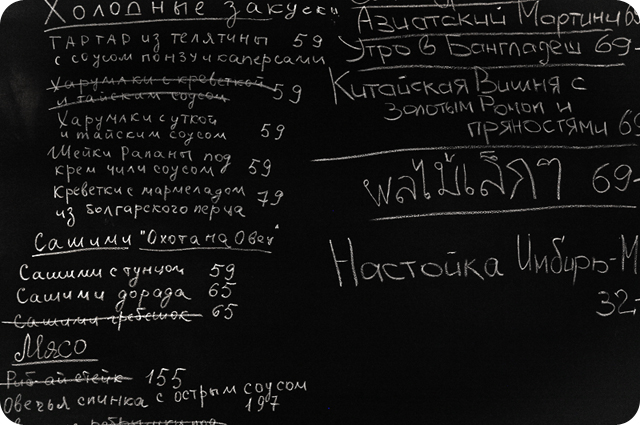 Холодные закуски
Тартар из телятины 59
с соусом понзу и каперсами
Харумаки с креветкой
и тайским соусом 59
Харумаки с уткой
и тайским соусом 59
Шейки Рапаны под
крем чили соусом 59
Креветки с мармеладом 79
из болгарского перца
Сашими "Охота на Овец"
Сашими с тунцом 59
Сашими дорада 65
Сашими гребешок 65
Мясо
Риб-ай стейк 155
Овечья спинка с острым соусом
197
Азиатский Мартини
Утро в Бангладеш 69-
Китайская Вишня с
золотым Ромом и
пряностями 69
ผลไม้เล็กๆ 69-
Настойка Имбирь-М
32-